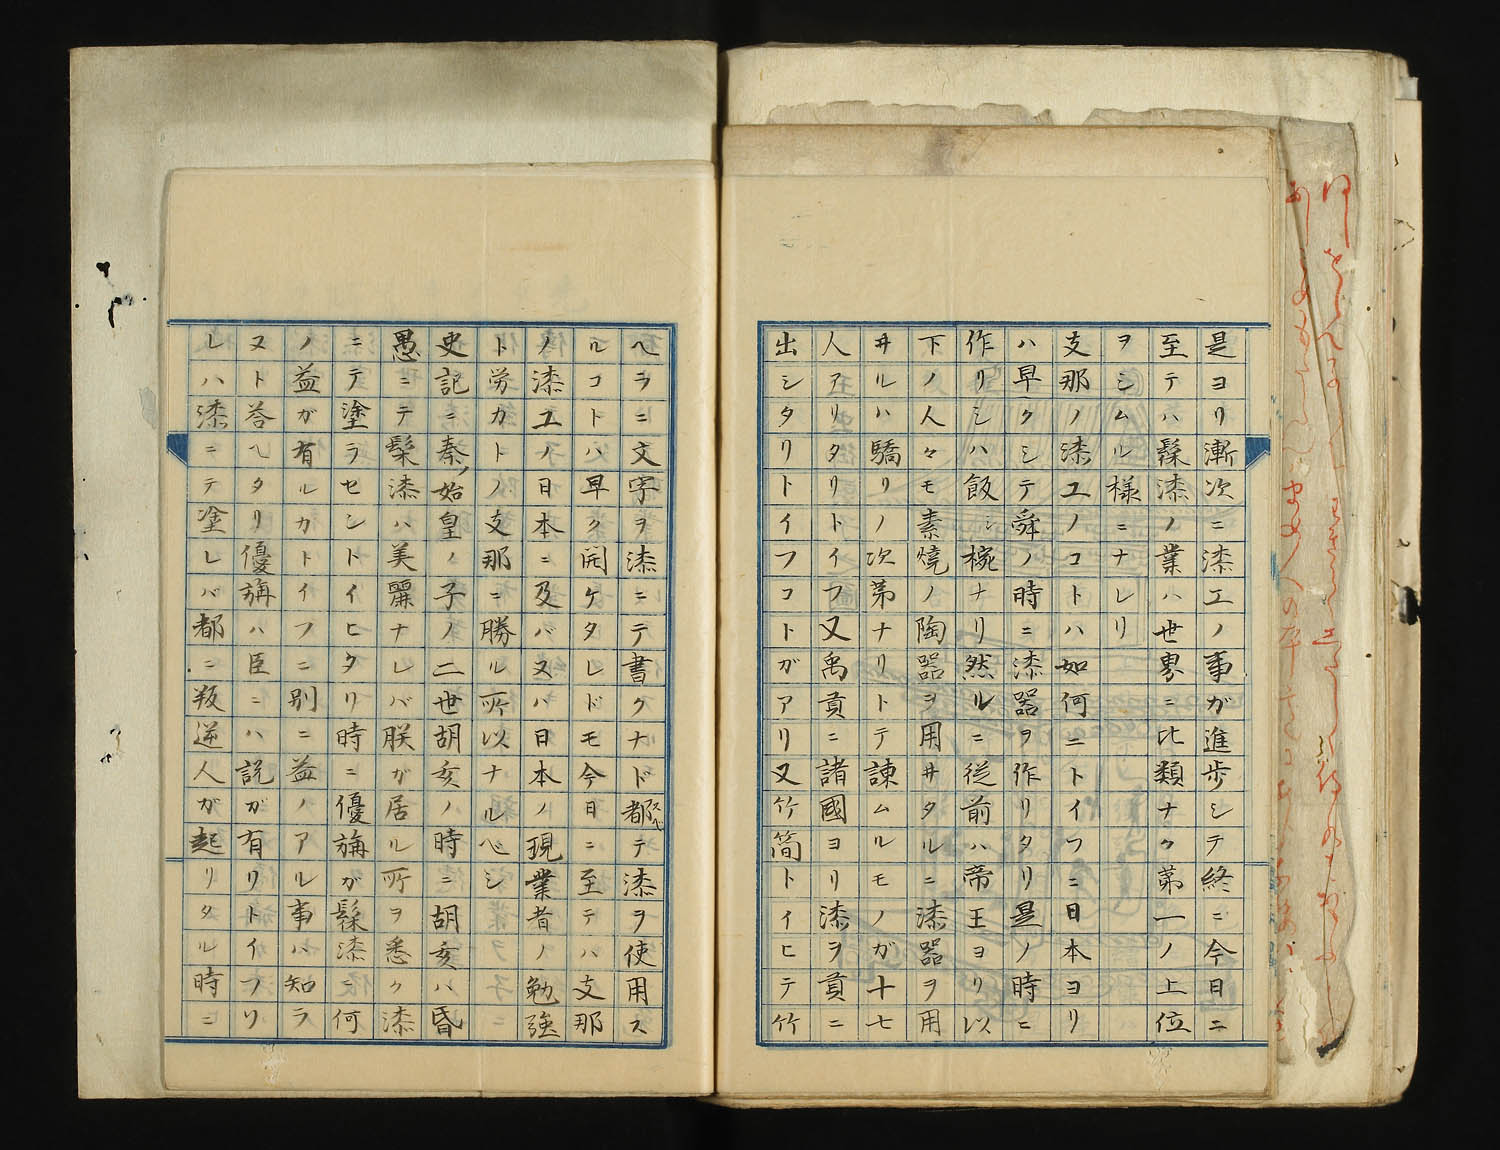 是ヨリ漸次ニ漆工ノ事ガ進歩シテ終ニ今日ニ
至テハ髹漆ノ業ハ世界ニ比類ナク第一ノ上位
ヲシムル様ニナレリ
支那ノ漆工ノコトハ如何ニトイフニ日本ヨリ
ハ早クシテ舜ノ時ニ漆器ヲ作リタリ是ノ時ニ
作リシハ飯椀ナリ然ルニ従前ハ帝王ヨリ以
下ノ人々モ素焼ノ陶器ヲ用井タルニ漆器ヲ用
井ルハ驕リノ次第ナリトテ諌ムルモノガ十七
人アリタリトイフ又禹貢ニ諸國ヨリ漆ヲ貢ニ
出シタリトイフコトガアリ又竹簡トイヒテ竹
ヘラニ文字ヲ漆ニテ書クナド都テ漆ヲ使用ス
スベ
ルコトハ早ク開ケタレドモ今日ニ至テハ支那
ノ漆工ノ日本ニ及バヌハ日本ノ現業者ノ勉強
ト労力トノ支那ニ勝ル所以ナルベシ
史記ニ秦ノ始皇ノ子ノ二世胡亥ノ時ニ胡亥ハ昏
愚ニテ髹漆ハ美麗ナレバ朕ガ居ル所ヲ悉ク漆
ニテ塗ラセントイヒタリ時ニ優旃ガ髹漆ニ何
ノ益ガ有ルカトイフニ別ニ益ノアル事ハ知ラ
ヌト答ヘタリ優旃ハ臣ニハ説ガ有リトイフソ
レハ漆ニテ塗レバ都ニ叛逆人ガ起リタル時ニ